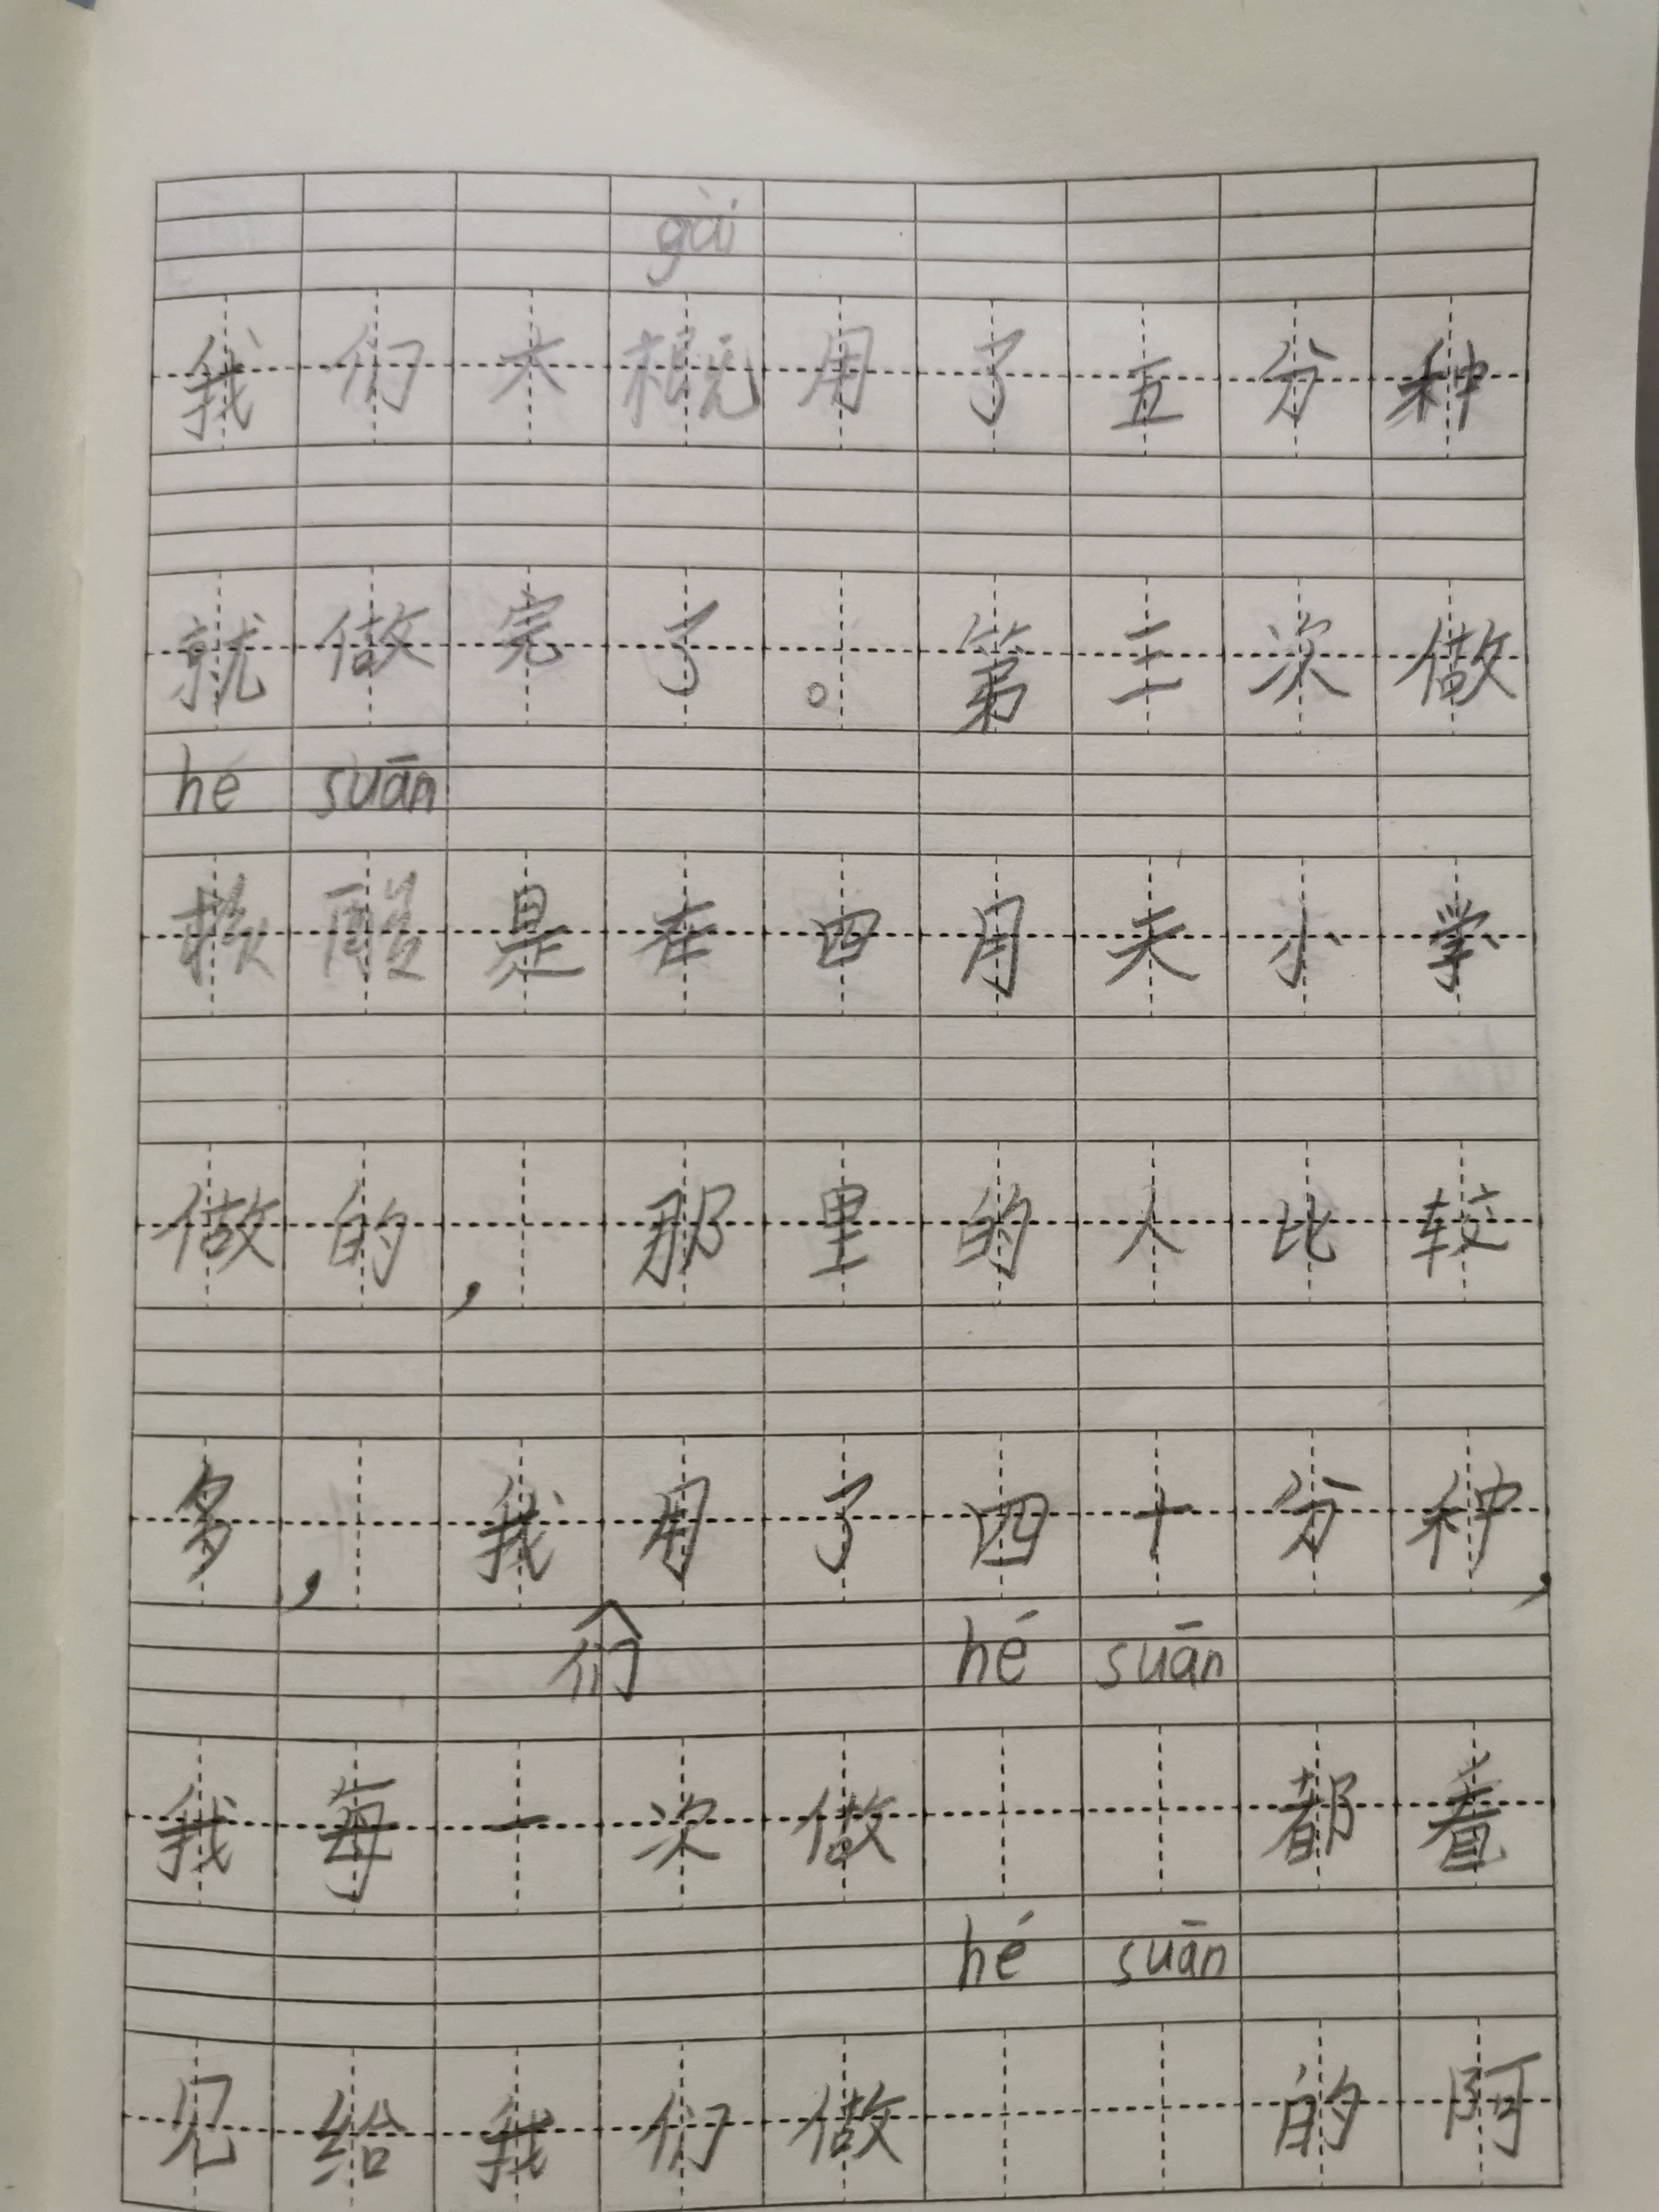 gài
我们大概用了五分种
就做完了。第三次做
hé suān
核酸是在四月天小学
做的，那里的人比较
多，我用了四十分种，
们 hé suān
我每一次做 都看
hé suān
见给我们做 的阿